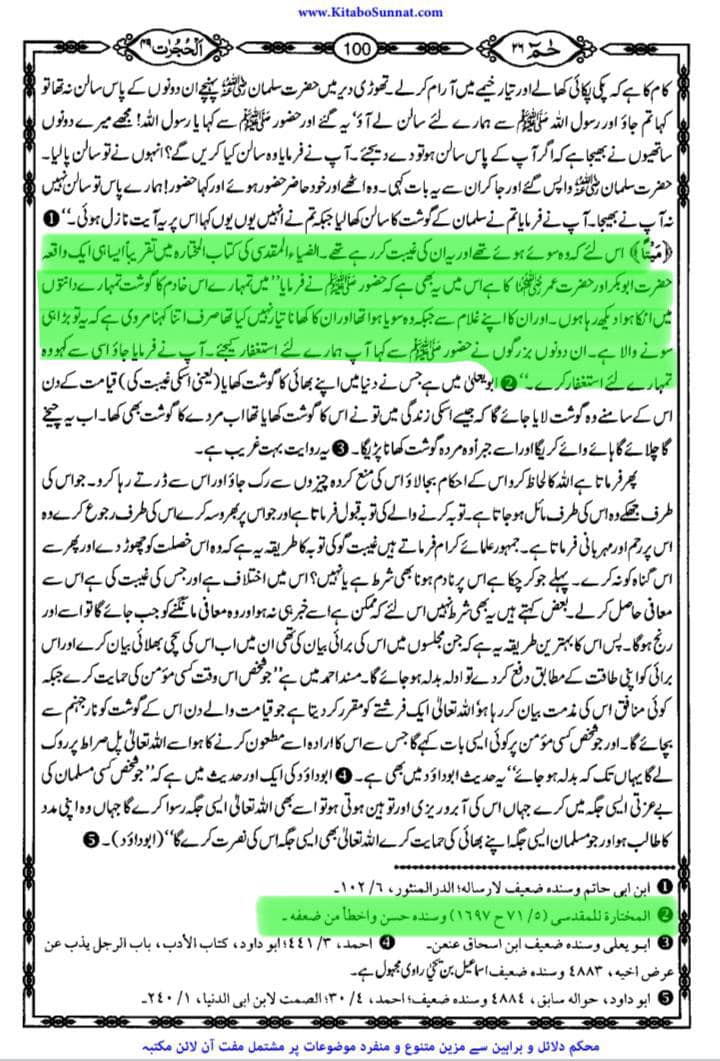 www.KitaboSunnat.com
الحُجُرٰت ۴۹
100
حٰمٓ ۲۶
کام کا ہے کہ پکی پکائی کھا لے اور تیار خیمے میں آرام کر لے۔ تھوڑی دیر میں حضرت سلمان رضی اللہ عنہ پہنچے ان دونوں کے پاس سالن نہ تھا تو
کہا تم جاؤ اور رسول اللہ ﷺ سے ہمارے لئے سالن لے آؤ' یہ گئے اور حضور ﷺ سے کہا یا رسول اللہ! مجھے میرے دونوں
ساتھیوں نے بھیجا ہے کہ اگر آپ کے پاس سالن ہو تو دے دیجئے۔ آپ نے فرمایا وہ سالن کیا کریں گے؟ انہوں نے تو سالن پا لیا۔
حضرت سلمان رضی اللہ عنہ واپس گئے اور جا کر ان سے یہ بات کہی۔ وہ اٹھے اور خود حاضر حضور ہوئے اور کہا حضور! ہمارے پاس تو سالن نہیں
نہ آپ نے بھیجا۔ آپ نے فرمایا تم نے سلمان کے گوشت کا سالن کھا لیا جبکہ تم نے انہیں یوں یوں کہا اس پر یہ آیت نازل ہوئی۔'' ❶
﴿مَيْتًا﴾ اس لئے کہ وہ سوئے ہوئے تھے اور یہ ان کی غیبت کر رہے تھے۔ الضیاء المقدسی کی کتاب المختارہ میں تقریباً ایسا ہی ایک واقعہ
حضرت ابوبکر اور حضرت عمر رضی اللہ عنہما کا ہے اس میں یہ بھی ہے کہ حضور ﷺ نے فرمایا ''میں تمہارے اس خادم کا گوشت تمہارے دانتوں
میں اٹکا ہوا دیکھ رہا ہوں۔ اور ان کا اپنے غلام سے جبکہ وہ سویا ہوا تھا اور ان کا کھانا تیار نہیں کیا تھا صرف اتنا کہنا مروی ہے کہ یہ تو بڑا ہی
سونے والا ہے۔ ان دونوں بزرگوں نے حضور ﷺ سے کہا آپ ہمارے لئے استغفار کیجئے۔ آپ نے فرمایا جاؤ اسی سے کہو وہ
تمہارے لئے استغفار کرے۔'' ❷ ابو یعلیٰ میں ہے جس نے دنیا میں اپنے بھائی کا گوشت کھایا (یعنی اسکی غیبت کی) قیامت کے دن
اس کے سامنے وہ گوشت لایا جائے گا کہ جیسے اسکی زندگی میں تو نے اس کا گوشت کھایا تھا اب مردے کا گوشت بھی کھا۔ اب یہ چیخے
گا چلائے گا ہائے وائے کریگا اور اسے جبراً وہ مردہ گوشت کھانا پڑیگا۔ ❸ یہ روایت بہت غریب ہے۔
پھر فرماتا ہے اللہ کا لحاظ کرو اس کے احکام بجا لاؤ اس کی منع کردہ چیزوں سے رک جاؤ اور اس سے ڈرتے رہا کرو۔ جو اس کی
طرف جھکے وہ اس کی طرف مائل ہو جاتا ہے۔ توبہ کرنے والے کی توبہ قبول فرماتا ہے اور جو اس پر بھروسہ کرے اس کی طرف رجوع کرے وہ
اس پر رحم اور مہربانی فرماتا ہے۔ جمہور علمائے کرام فرماتے ہیں غیبت گو کی توبہ کا طریقہ یہ ہے کہ وہ اس خصلت کو چھوڑ دے اور پھر سے
اس گناہ کو نہ کرے۔ پہلے جو کر چکا ہے اس پر نادم ہونا بھی شرط ہے یا نہیں؟ اس میں اختلاف ہے اور جس کی غیبت کی ہے اس سے
معافی حاصل کر لے۔ بعض کہتے ہیں یہ بھی شرط نہیں اس لئے کہ ممکن ہے اسے خبر ہی نہ ہو اور وہ معافی مانگنے کو جب جائے گا تو اسے اور
رنج ہوگا۔ پس اس کا بہترین طریقہ یہ ہے کہ جن مجلسوں میں اس کی برائی بیان کی تھی ان میں اب اس کی سچی بھلائی بیان کرے اور اس
برائی کو اپنی طاقت کے مطابق دفع کر دے تو اولہ بدلہ ہو جائے گا۔ مسند احمد میں ہے ''جو شخص اس وقت کسی مؤمن کی حمایت کرے جبکہ
کوئی منافق اس کی مذمت بیان کر رہا ہو' اللہ تعالیٰ ایک فرشتے کو مقرر کر دیتا ہے جو قیامت والے دن اس کے گوشت کو نار جہنم سے
بچائے گا۔ اور جو شخص کسی مؤمن پر کوئی ایسی بات کہے گا جس سے اس کا ارادہ اسے مطعون کرنے کا ہو اسے اللہ تعالیٰ پل صراط پر روک
لے گا یہاں تک کہ بدلہ ہو جائے'' یہ حدیث ابو داؤد میں بھی ہے۔ ❹ ابو داؤد کی ایک اور حدیث میں ہے کہ ''جو شخص کسی مسلمان کی
بے عزتی ایسی جگہ میں کرے جہاں اس کی آبرو ریزی اور توہین ہوتی ہو تو اسے بھی اللہ تعالیٰ ایسی جگہ رسوا کرے گا جہاں وہ اپنی مدد
کا طالب ہو اور جو مسلمان ایسی جگہ اپنے بھائی کی حمایت کرے اللہ تعالیٰ بھی ایسی جگہ اس کی نصرت کرے گا'' (ابو داؤد)۔ ❺
❶ ابن ابی حاتم وسنده ضعيف لارساله؛ الدرالمنثور، ۶/ ۱۰۲۔
❷ المختارة للمقدسی (۵/ ۷۱ ح ۱۶۹۷) وسنده حسن واخطأ من ضعفه۔
❸ ابو یعلی وسنده ضعيف ابن اسحاق عنعن۔ ❹ احمد، ۳/ ۴۴۱؛ ابو داود، کتاب الأدب، باب الرجل يذب عن
عرض اخيه، ۴۸۸۳ وسنده ضعيف اسماعیل بن یحییٰ راوی مجہول ہے۔
❺ ابو داود، حوالہ سابق، ۴۸۸۴ وسنده ضعيف؛ احمد، ۴/ ۳۰؛ الصمت لابن ابی الدنیا، ۱/ ۲۴۰۔
محکم دلائل و براہین سے مزین متنوع و منفرد موضوعات پر مشتمل مفت آن لائن مکتبہ